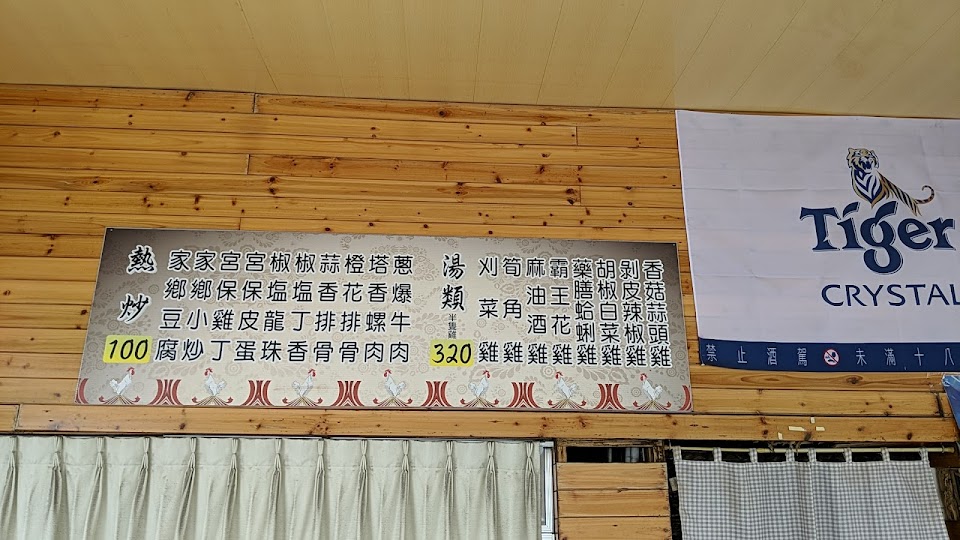 熱炒
100
家鄉豆腐
家鄉小炒
宮保雞丁
宮保皮蛋
椒塩龍珠
椒塩丁香
蒜香排骨
橙花排骨
塔香螺肉
蔥爆牛肉
湯類
半隻雞
320
刈菜雞
筍角雞
麻油酒雞
霸王花雞
藥膳蛤蜊雞
胡椒白菜雞
剝皮辣椒雞
香菇蒜頭雞
Tiger
CRYSTAL
禁止酒駕 未滿十八